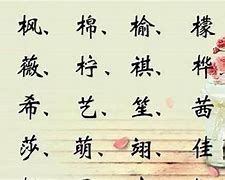 枫、棉、榆、檬
薇、柠、祺、桦
希、艺、笙、茜
莎、萌、翊、佳